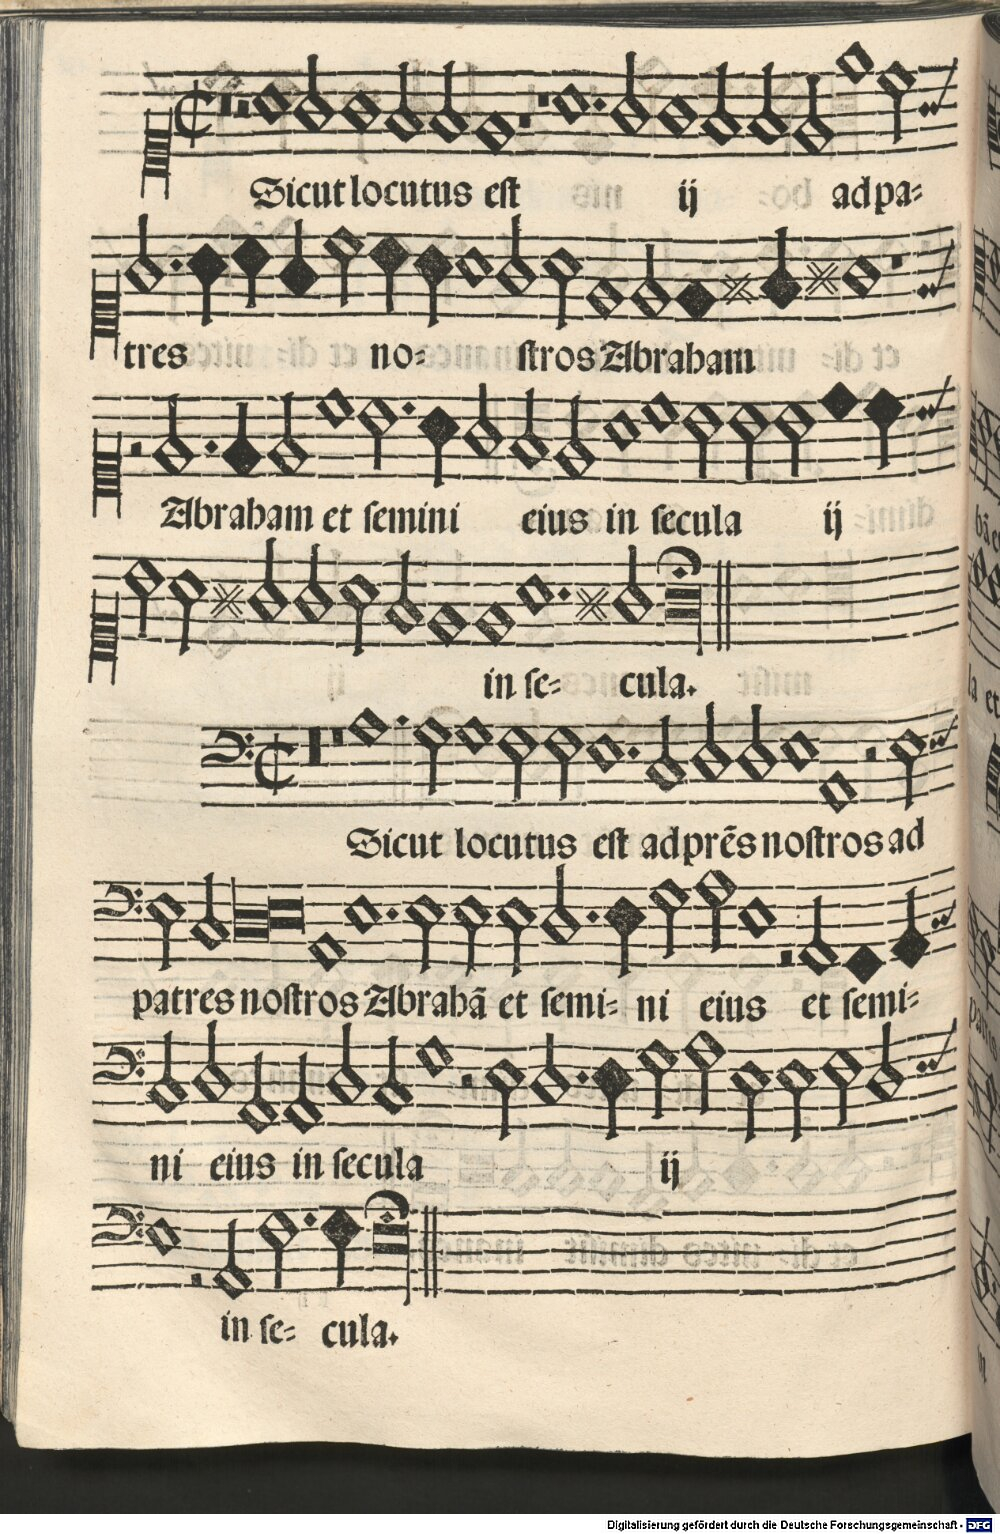 Sicut locutus est ij ad pa-
tres no- stros Abraham
Abraham et semini eius in secula ij
in se- cula.
Sicut locutus est ad prēs nostros ad
patres nostros Abrahā et semi- ni eius et semi-
ni eius in secula ij
in se- cula.
Digitalisierung gefördert durch die Deutsche Forschungsgemeinschaft - DFG